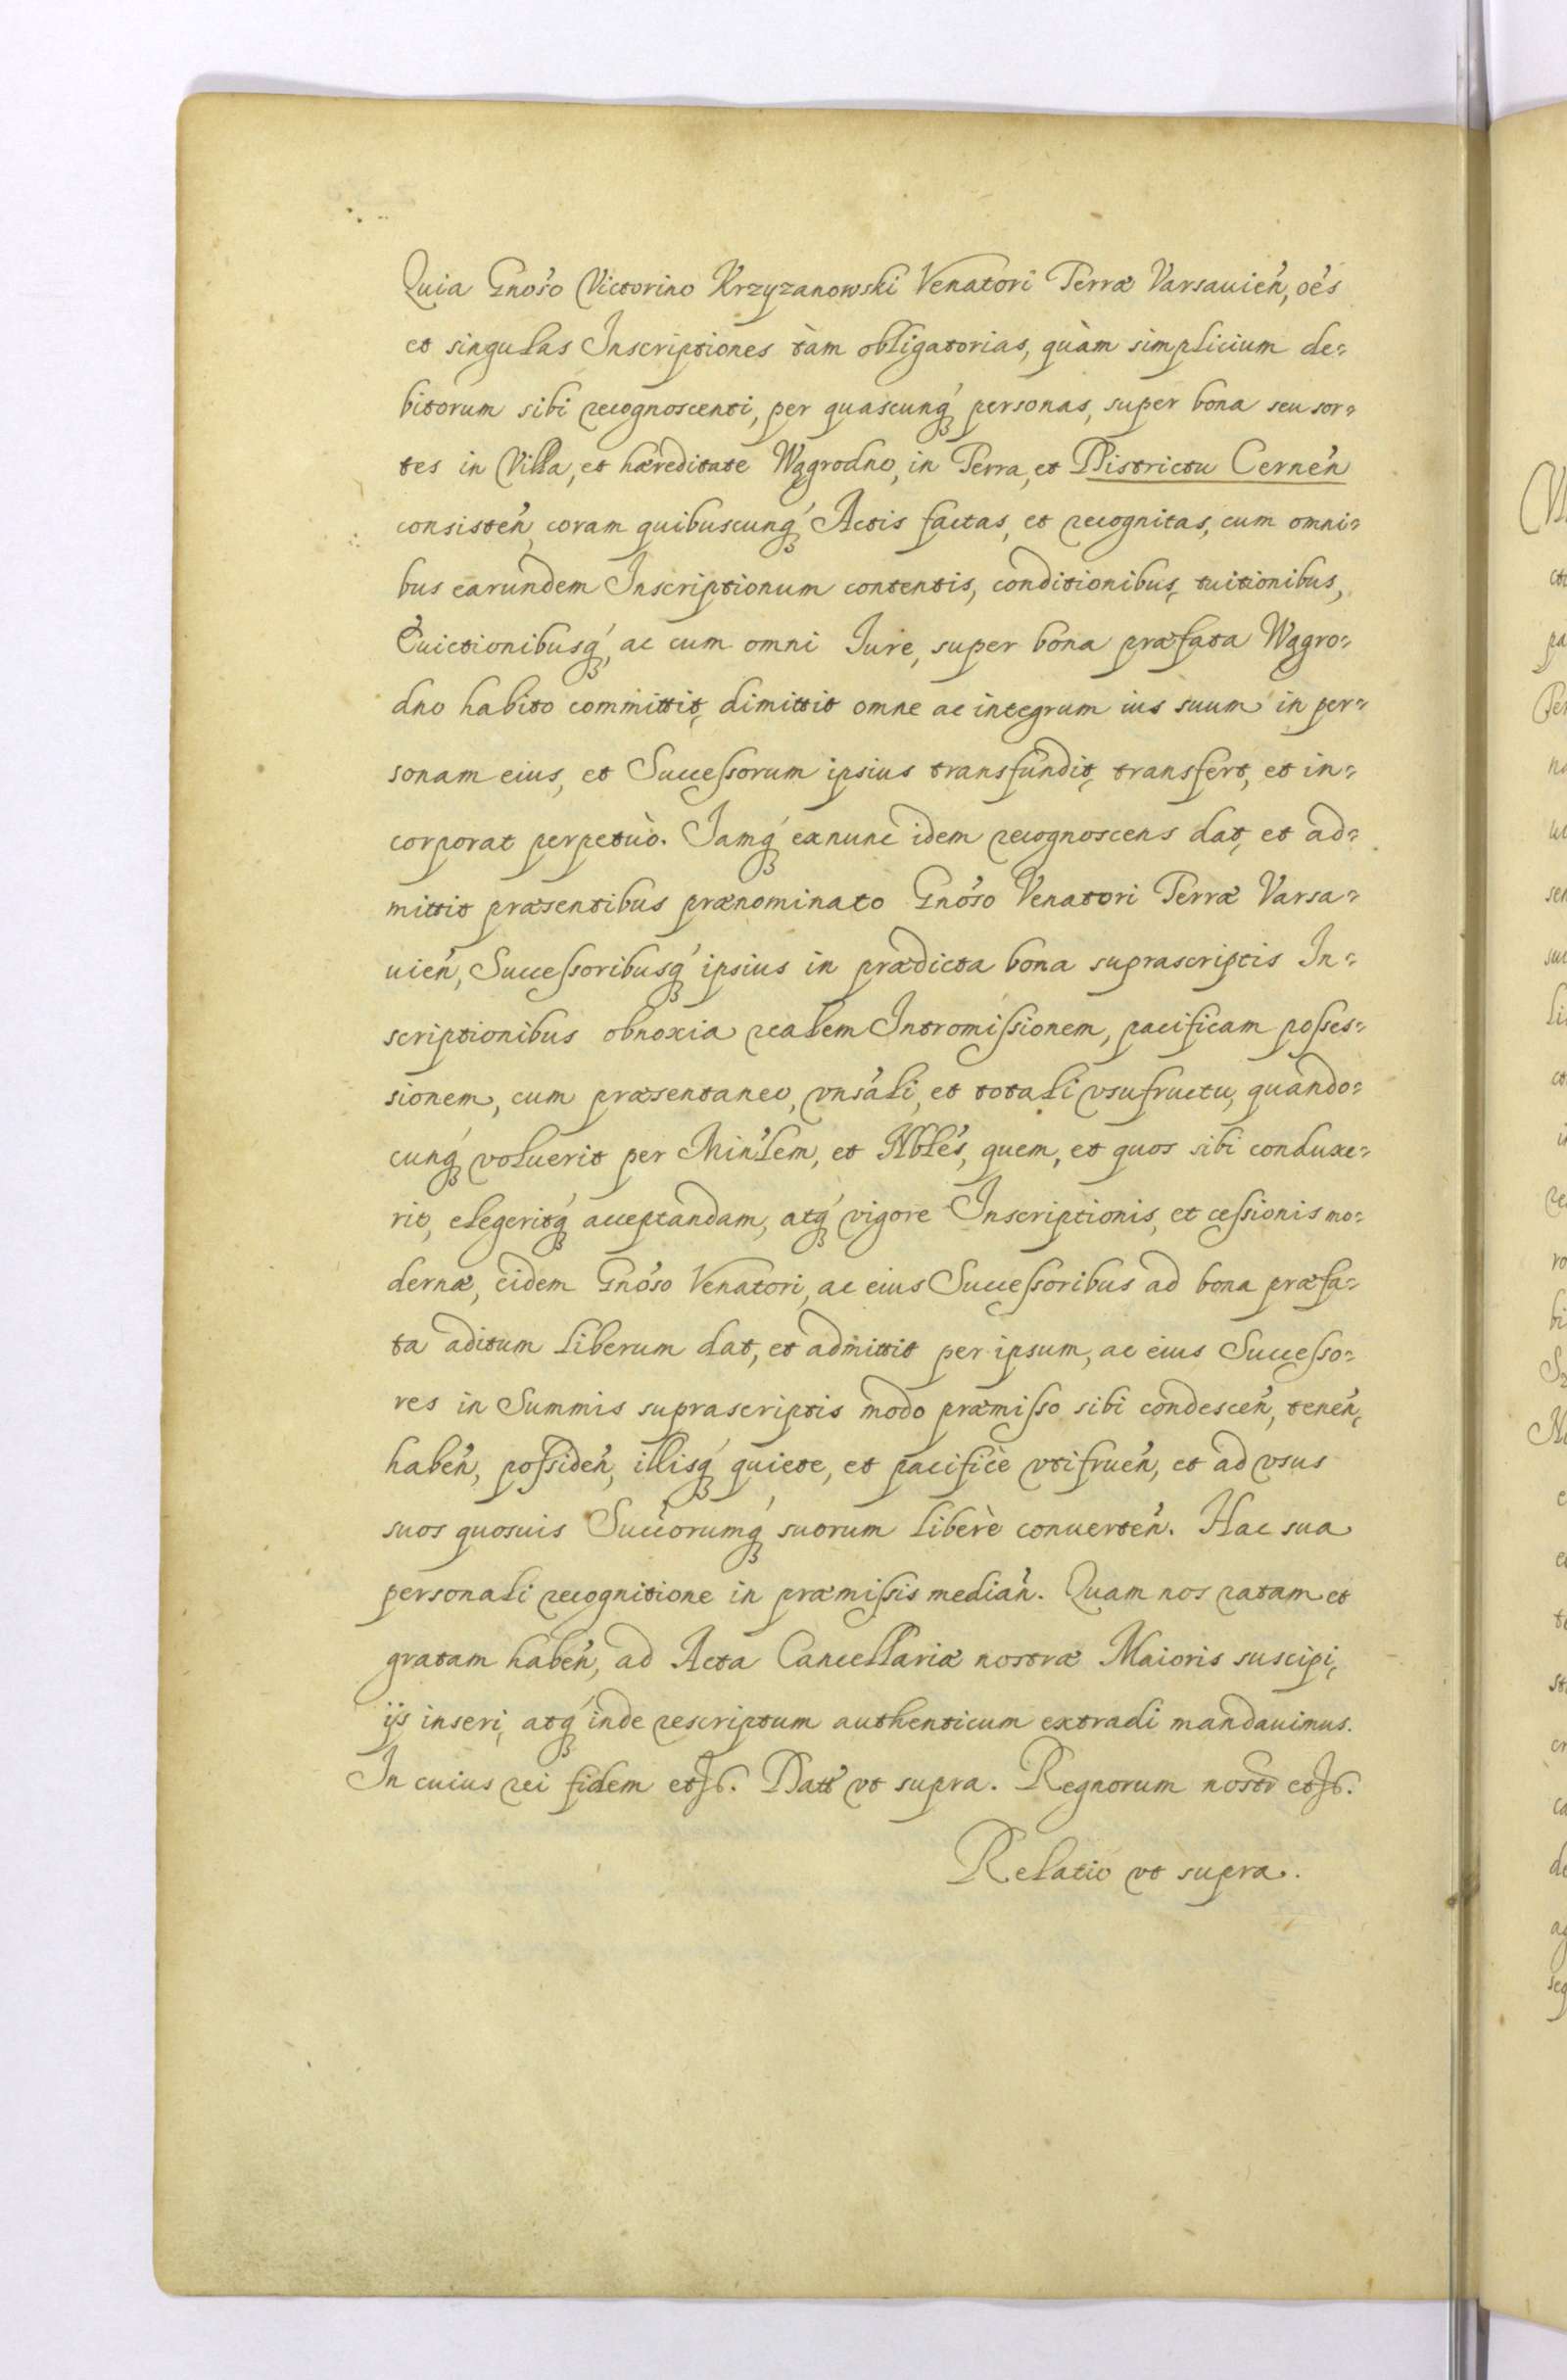 Quia Gnoso Victorino Krzyzanowski Venatori Terræ Varsauien, oẽs
et singulas Inscriptiones tàm obligatorias, quàm simplicium de=
bitorum sibi recognoscenti, per quascunq́ꝫ personas, super bona seu sor=
tes in Villa, et hæreditate Wągrodno, in Terra, et Districtu Cernen̉
consisten̉, coram quibuscunq́ꝫ Actis factas, et recognitas, cum omni=
bus earundem Inscriptionum contentis, conditionibus, tuitionibus,
Euictionibusq́ꝫ, ac cum omni Iure, super bona præfata Wągro=
dno habito committit, dimittit omne ac integrum ius suum in per=
sonam eius, et Succeſsorum ipsius transfundit, transfert, et in=
corporat perpetuò. Iamq́ꝫ exnunc idem recognoscens dat, et ad=
mittit præsentibus prænominato Gnoso Venatori Terræ Varsa=
uien̉, Succeſsoribusq́ꝫ ipsius in prædicta bona suprascriptis In=
scriptionibus obnoxia realem Intromiſsionem, pacificam poſses=
sionem, cum præsentaneo, vnsali, et totali vsufructu, quando=
cunq́ꝫ voluerit per Minlem, et Nbles, quem, et quos sibi conduxe=
rit, elegeritq́ꝫ acceptandam, atq́ꝫ vigore Inscriptionis, et ceſsionis mo=
dernæ, eidem Gnoso Venatori, ac eius Succeſsoribus ad bona præfa=
ta aditum liberum dat, et admittit per ipsum, ac eius Succeſso=
res in Summis suprascriptis modo præmiſso sibi condescen̉, tenen̉,
haben̉, poſsiden̉, illisq́ꝫ quiete, et pacificè vtifruen̉, et ad vsus
suos quosuis Succorumq́ꝫ suorum liberè conuerten̉. Hac sua
personali recognitione in præmiſsis median̉. Quam nos ratam et
gratam haben̉, ad Acta Cancellariæ nostræ Maioris suscipi,
ijs inseri, atq́ꝫ inde rescriptum authenticum extradi mandauimus.
In cuius rei fidem etc. Datt vt supra. Regnorum nostr etc.
Relatio vt supra.